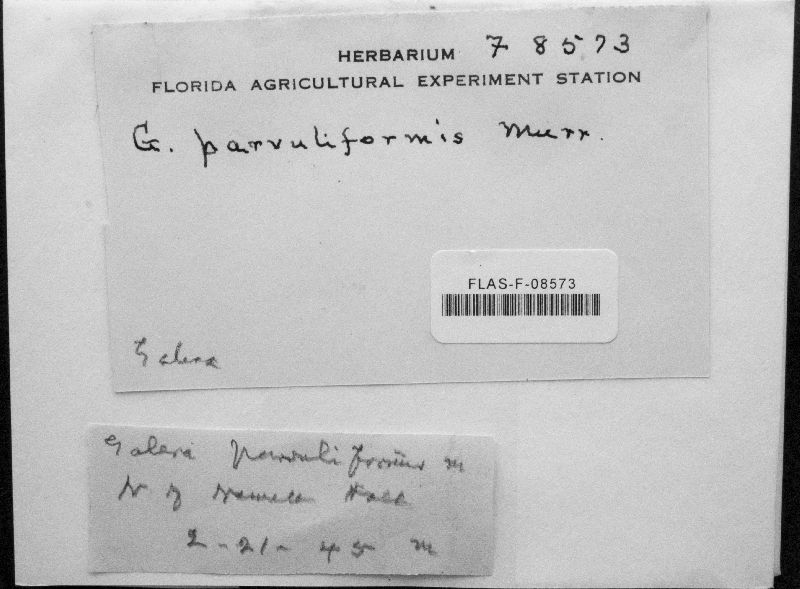 HERBARIUM F 8573
FLORIDA AGRICULTURAL EXPERIMENT STATION
G. parvuliformis Murr.
FLAS-F-08573
Galera
Galera parvuliformis M
N of Newell Hall
2-21-45 M